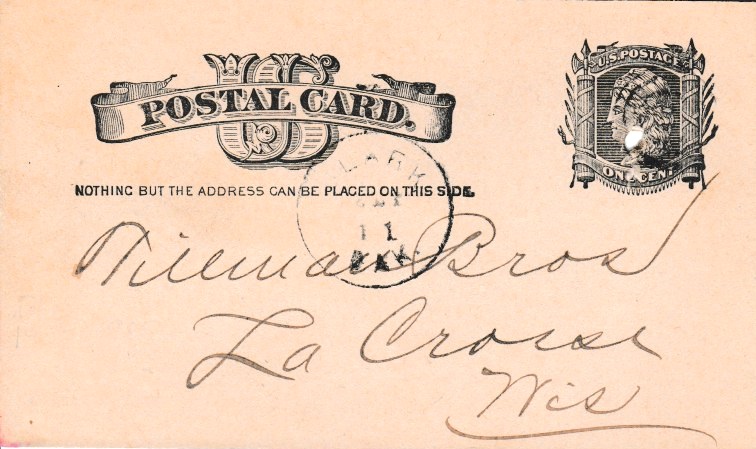 US
POSTAL CARD.
U.S. POSTAGE
ONE CENT
NOTHING BUT THE ADDRESS CAN BE PLACED ON THIS SIDE.
LARK
11
Tilleman Bros
La Crosse
Wis